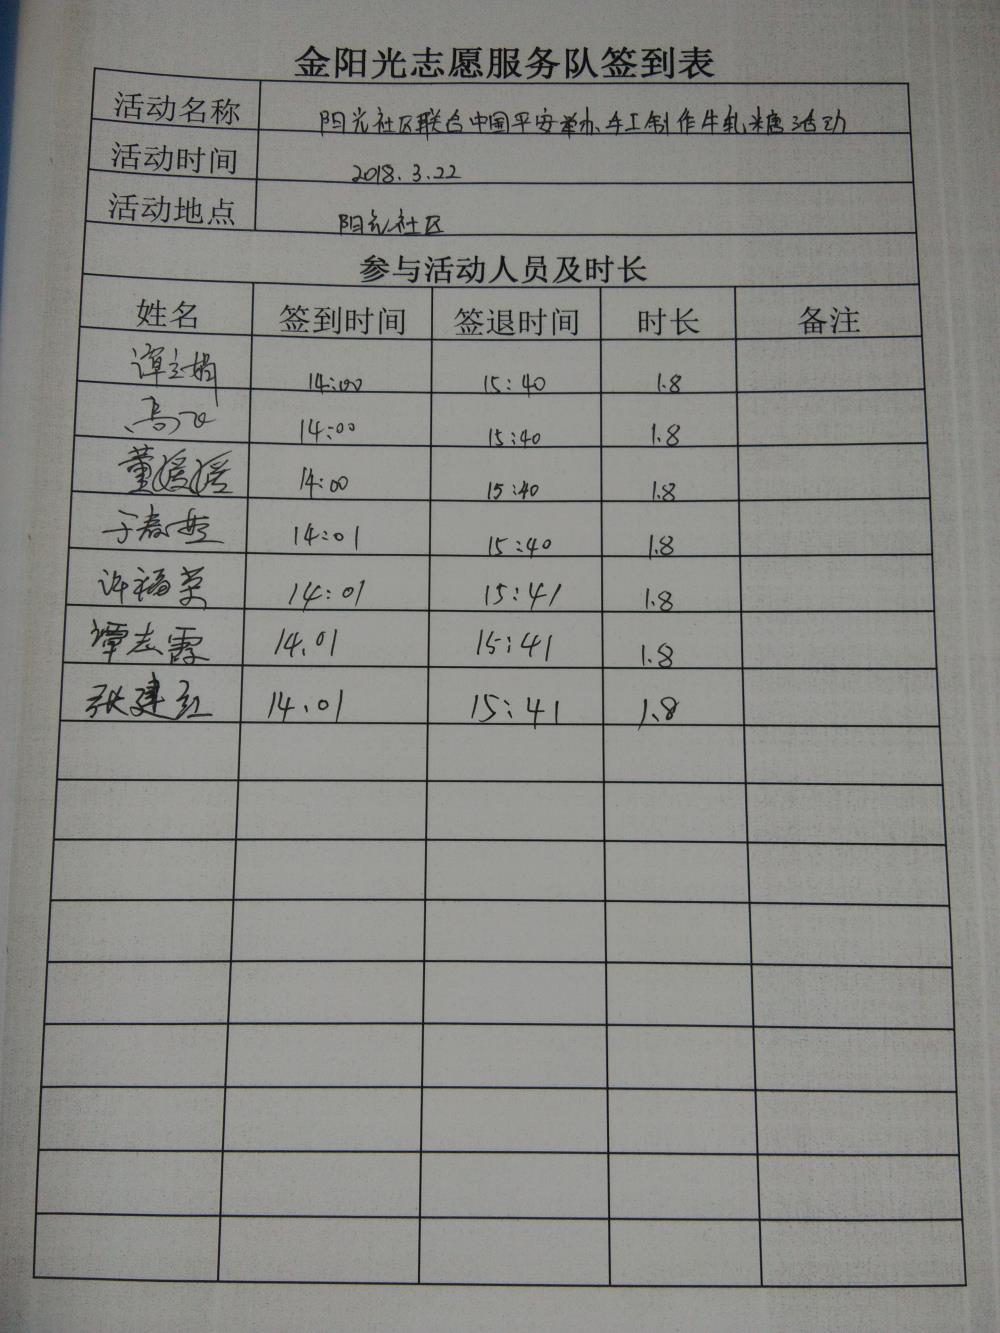 金阳光志愿服务队签到表
活动名称 阳光社区联合中国平安举办手工制作牛轧糖活动
活动时间 2018.3.22
活动地点 阳光社区
参与活动人员及时长
姓名 签到时间 签退时间 时长 备注
谭立娟 14:00 15:40 1.8
高飞 14:00 15:40 1.8
董媛媛 14:00 15:40 1.8
于春 14:01 15:40 1.8
许福荣 14:01 15:41 1.8
谭志霞 14.01 15:41 1.8
张建红 14.01 15:41 1.8